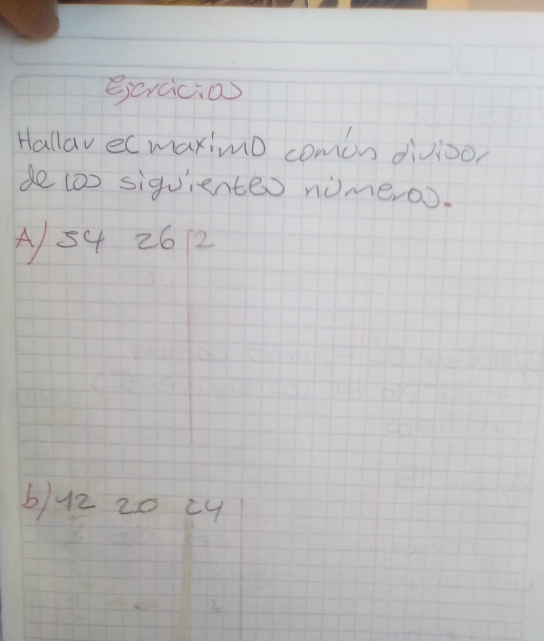 Ejercicios
Hallar el maximo común divisor
de los siguientes números.
A) 54 26 2
b) 12 20 24